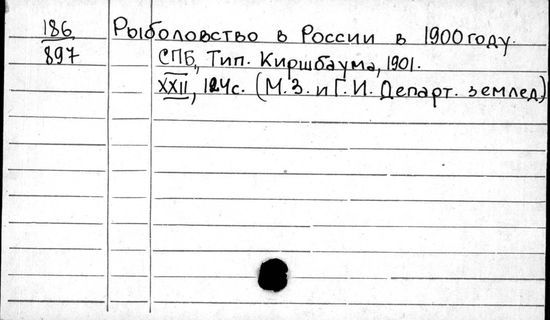 186 Рыболовство в России в 1900 году.
897 СПБ., Тип. Киршбаума, 1901.
XXII, 124с. (М.З. и Г.И. Департ. землед.)